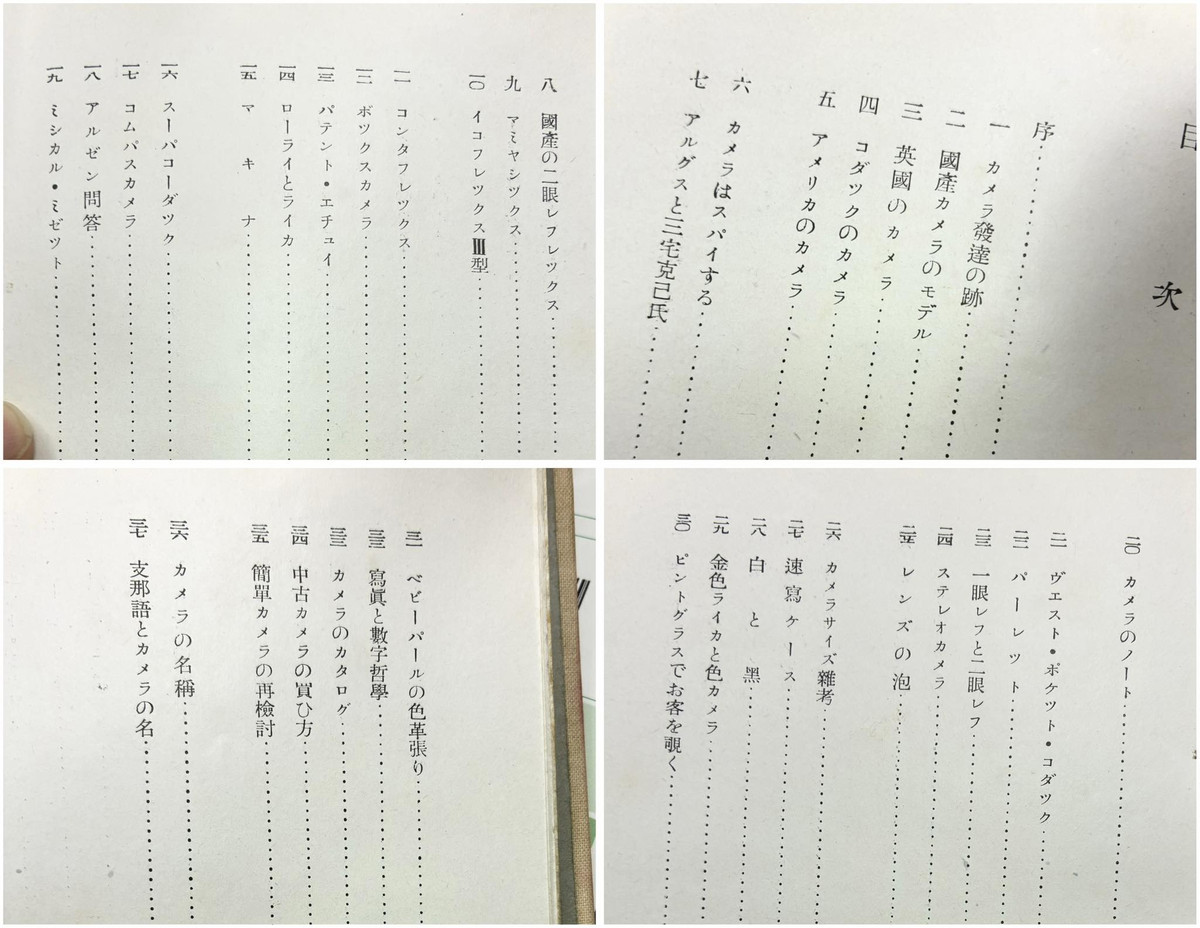 目次
序
一 カメラ發達の跡
二 國產カメラのモデル
三 英國のカメラ
四 コダツクのカメラ
五 アメリカのカメラ
六 カメラはスパイする
七 アルグスと三宅克己氏
八 國產の二眼レフレツクス
九 マミヤシツクス
一〇 イコフレツクスⅢ型
一一 コンタフレツクス
一二 ボツクスカメラ
一三 パテント・エチュイ
一四 ローライとライカ
一五 マキナ
一六 スーパコーダツク
一七 コムパスカメラ
一八 アルゼン問答
一九 ミシカル・ミゼツト
二〇 カメラのノート
二一 ヴエスト・ポケツト・コダツク
二二 パーレツト
二三 一眼レフと二眼レフ
二四 ステレオカメラ
二五 レンズの泡
二六 カメラサイズ雜考
二七 速寫ケース
二八 白と黑
二九 金色ライカと色カメラ
三〇 ピントグラスでお客を覗く
三一 ベビーパールの色革張り
三二 寫眞と數字哲學
三三 カメラのカタログ
三四 中古カメラの買ひ方
三五 簡單カメラの再檢討
三六 カメラの名稱
三七 支那語とカメラの名